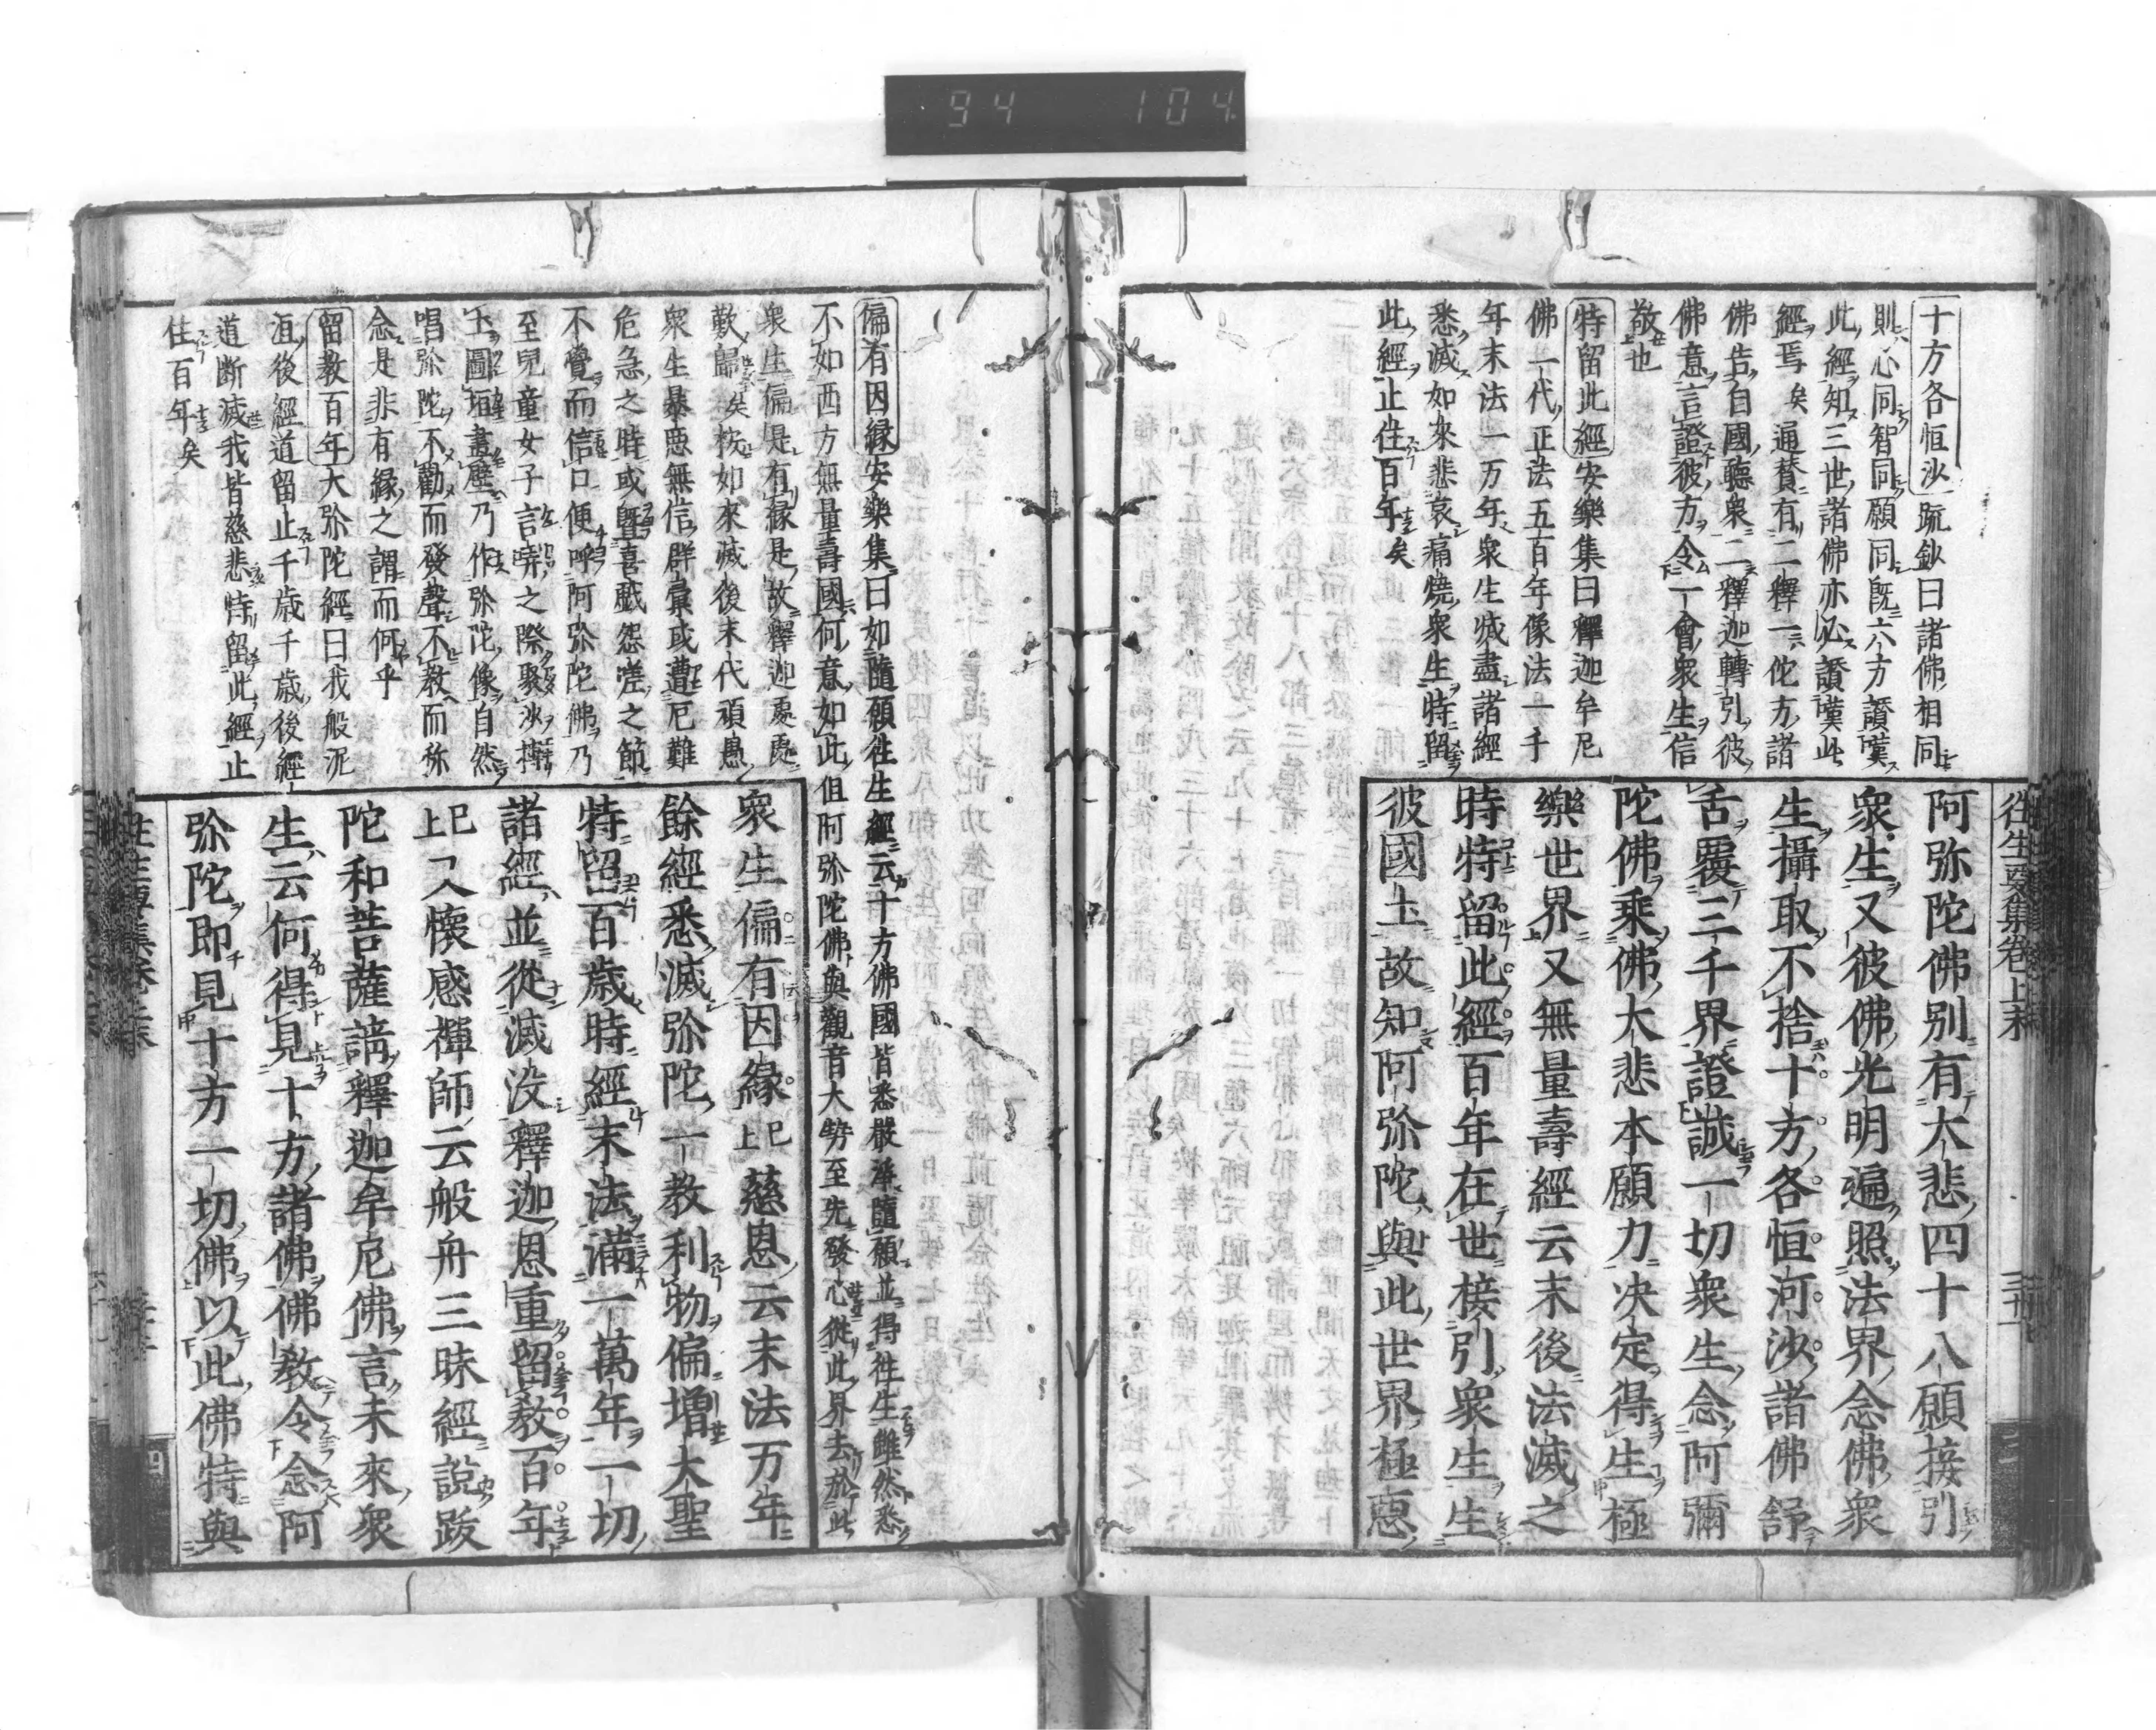 94 104
十方各恒沙 䟽鈔曰諸佛相同
則心同智同願同既六方讃嘆
此經知三世諸佛亦必讃嘆此
經焉矣通賛有二釋一佗方諸
佛告自國聽衆二釋迦轉引彼
佛意言證彼方令一會衆生信
敬也
特留此經 安樂集曰釋迦牟尼
佛一代正法五百年像法一千
年末法一万年衆生滅盡諸經
悉滅如來悲哀痛燒衆生特留
此經止住百年矣
阿弥陀佛別有大悲四十八願接引
衆生又彼佛光明遍照法界念佛衆
生攝取不捨十方各恒河沙諸佛舒
舌覆三千界證誠一切衆生念阿彌
陀佛乘佛大悲本願力决定得生極
樂世界又無量壽經云末後法滅之
時特留此經百年在世接引衆生生
彼國土故知阿弥陀與此世界極惡
往生要集卷上末
偏有因緣 安樂集曰如隨願往生經云十方佛國皆悉嚴淨隨願並得往生雖然悉
不如西方無量壽國何意如此但阿弥陀佛與觀音大勢至先發心從此界去於此
衆生偏是有緣是故釋迦處處
歎歸矣按如來滅後末代頑愚
衆生暴惡無信群彙或遭厄難
危急之時或曁喜戲怨嗟之節
不覺而信口便呼阿弥陀佛乃
至兒童女子言哢之際聚沙搏
土圖垣畫壁乃作弥陀像自然
唱弥陀不勸而發聲不教而称
念是非有緣之謂而何乎
留教百年 大弥陀經曰我般泥
洹後經道留止千歳千歳後經
道断滅我皆慈悲恃留此經止
住百年矣
衆生偏有因緣已上慈恩云末法万年
餘經悉滅弥陀一教利物偏增大聖
特留百歳時經末法滿一萬年一切
諸經並從滅没釋迦恩重留教百年
已上又懷感禪師云般舟三昧經說跋
陀和菩薩請釋迦牟尼佛言未來衆
生云何得見十方諸佛佛教令念阿
弥陀即見十方一切佛以此佛特與